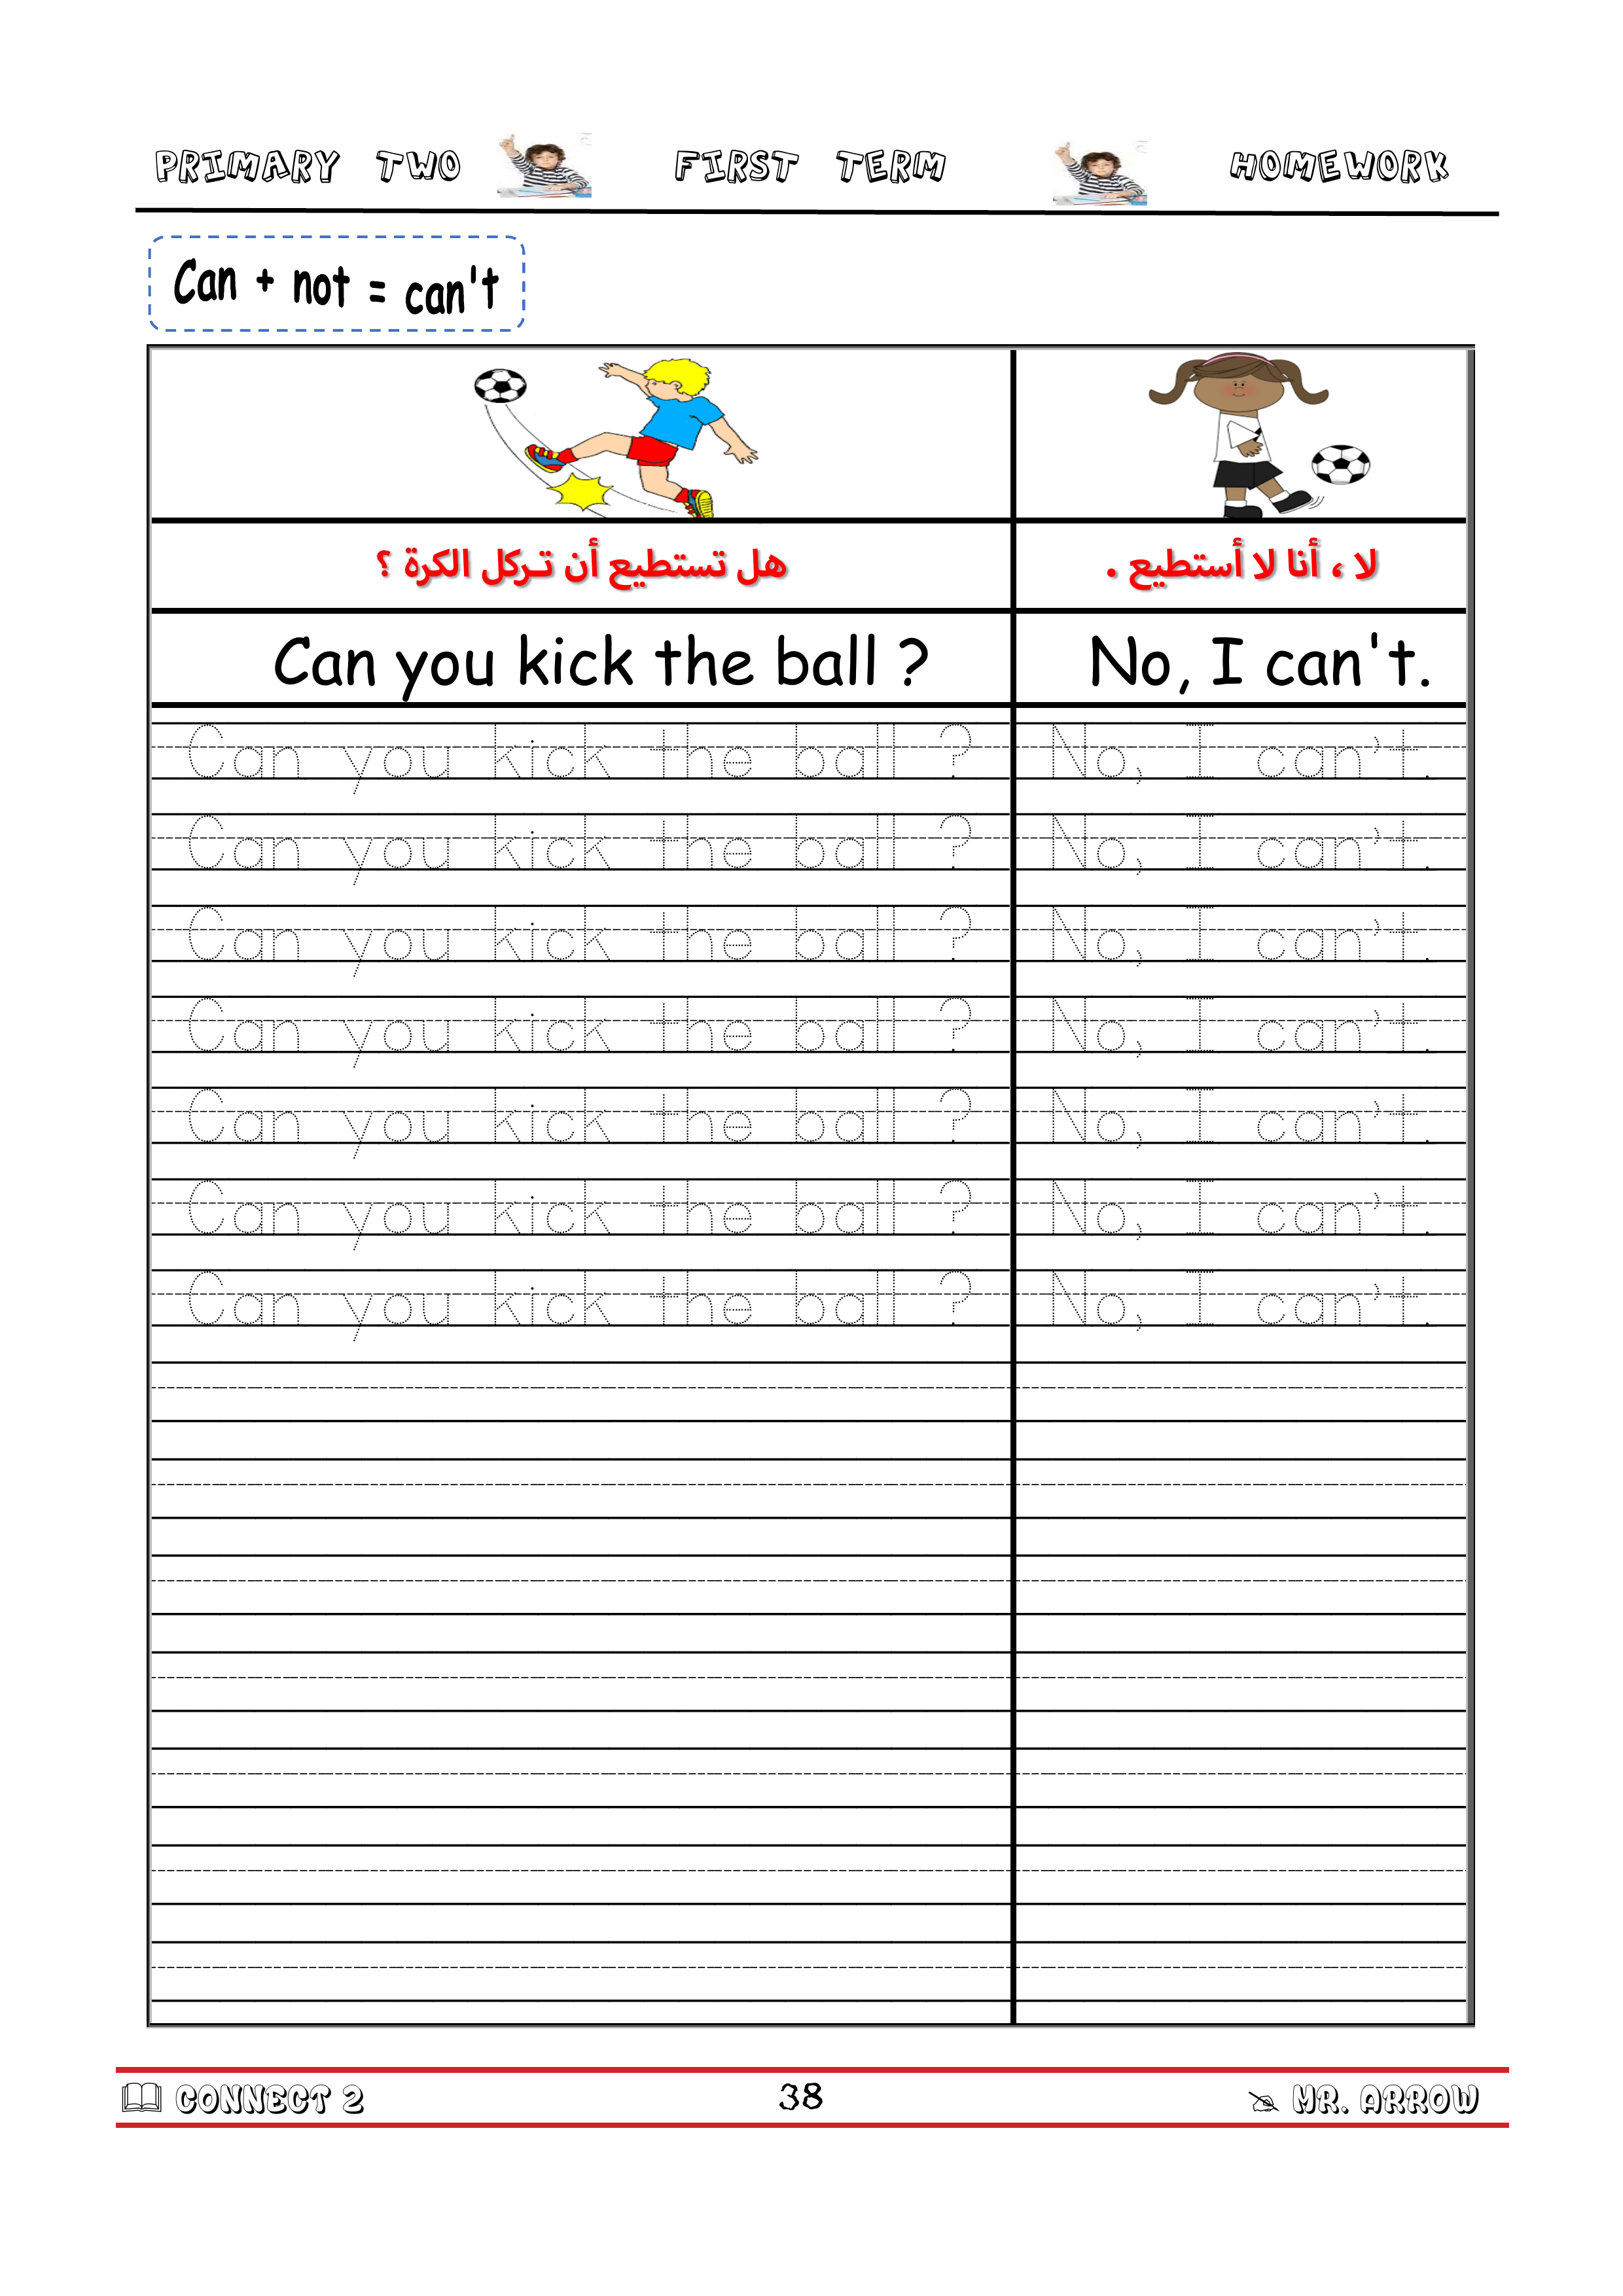 PRIMARY TWO FIRST TERM HOMEWORK
Can + not = can't
هل تستطيع أن تـركل الكرة ؟
لا ، أنا لا أستطيع .
Can you kick the ball ? No, I can't.
Can you kick the ball ? No, I can't.
Can you kick the ball ? No, I can't.
Can you kick the ball ? No, I can't.
Can you kick the ball ? No, I can't.
Can you kick the ball ? No, I can't.
Can you kick the ball ? No, I can't.
Can you kick the ball ? No, I can't.
CONNECT 2 38 MR. ARROW